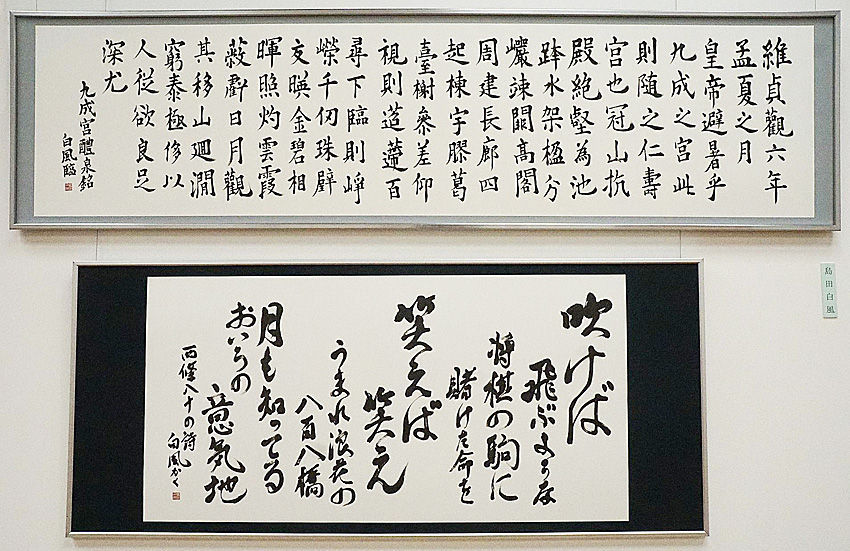 維貞觀六年
孟夏之月
皇帝避暑乎
九成之宮此
則隨之仁壽
宮也冠山抗
殿絶壑為池
跨水架楹分
巗竦闕高閣
周建長廊四
起棟宇膠葛
臺榭參差仰
視則迢遰百
尋下臨則崢
嶸千仞珠璧
交暎金碧相
暉照灼雲霞
蔽虧日月觀
其移山廻澗
窮泰極侈以
人從欲良足
深尤
九成宮醴泉銘
白風臨
吹けば
飛ぶような
将棋の駒に
賭けた命を
笑えば
笑え
うまれ浪花の
八百八橋
月も知ってる
おいらの
意気地
西條八十の詩
白風かく
島田白風